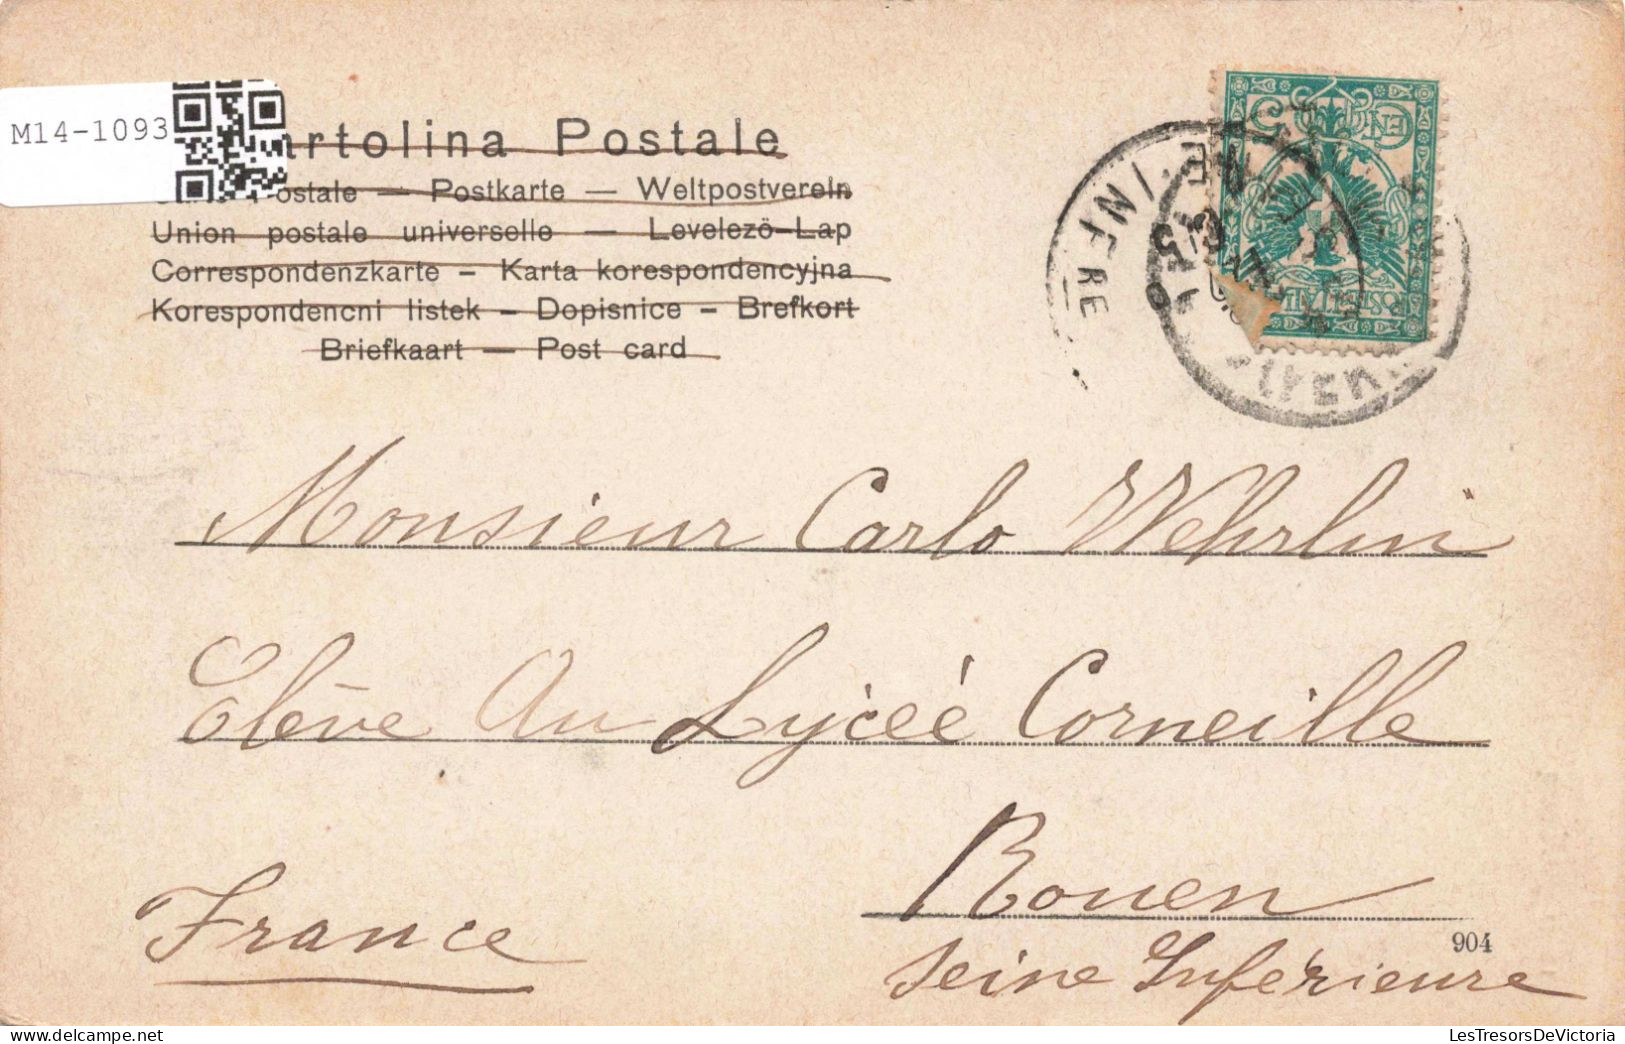 M14-1093
artolina Postale
ostale — Postkarte — Weltpostverein
Union postale universelle — Levelezö-Lap
Correspondenzkarte – Karta korespondencyjna
Korespondencni listek – Dopisnice – Brefkort
Briefkaart — Post card
INFRE
CENT 5
POSTE ITALIANE
Monsieur Carlo Wehrlin
Elève Au Lycéé Corneille
Rouen
904
France
Seine Inférieure
LesTresorsDeVictoria